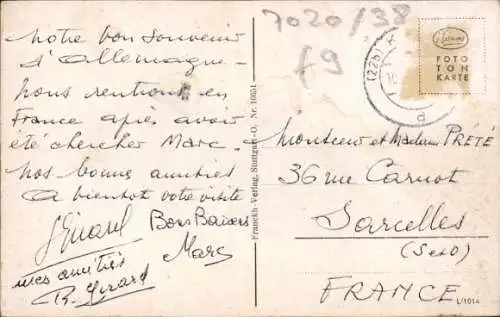 notre bon souvenir
d'Allemagne -
nous rentrons en
France après avoir
été chercher Marc.
nos bonnes amitiés
A bientot votre visite
Bons Baisers
Marc
mes amitiés
R. Girard
Franckh-Verlag, Stuttgart-O. Nr. 10651
7020/38
f9
(22b)
d
FOTO
TON
KARTE
Monsieur et Madame PRÉTÉ
36 rue Carnot
Sarcelles
(S et O)
FRANCE
L/1014